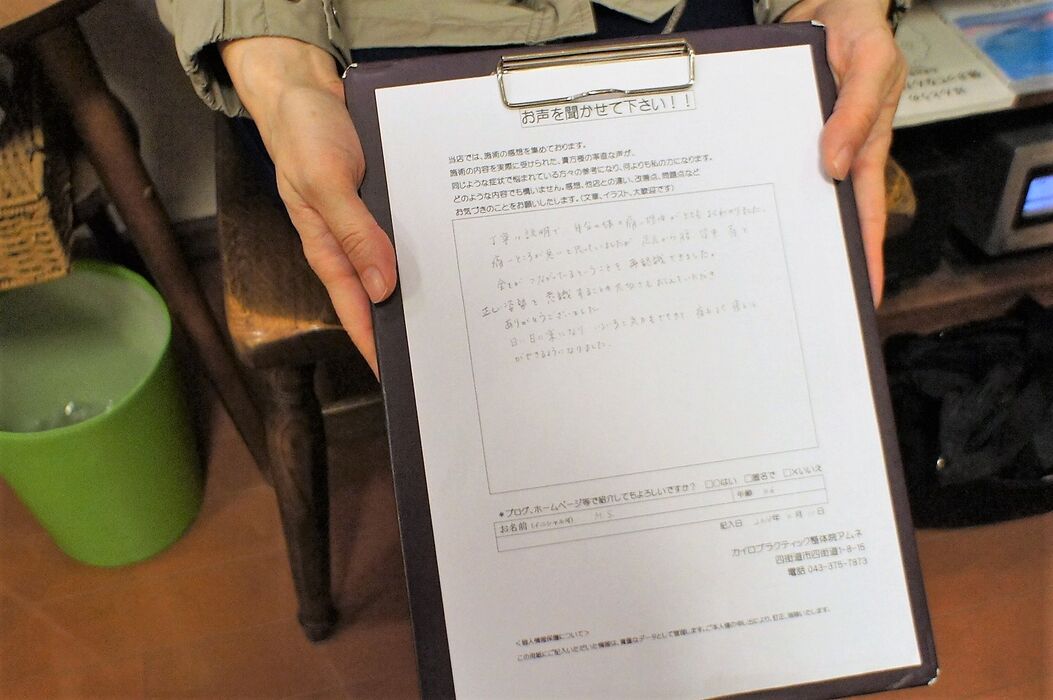 お声を聞かせて下さい！！
当店では、施術の感想を集めております。
施術の内容を実際に受けられた、貴方様の率直な声が、
同じような症状で悩まれている方々の参考になり、何よりも私の力になります。
どのような内容でも構いません。感想、他店との違い、改善点、問題点など
お気づきのことをお願いしたします。（文章、イラスト、大歓迎です）
丁寧な説明で、自分の体の痛い理由がとてもよくわかりました。
痛いところが悪いと思っていましたが 足から腰、背中 肩と
全てが つながっているということを 再認識できました。
正しい姿勢を意識することの大切さもおしえていただき
ありがとうございました
日に日に楽になり
ができるようになりました。
＊ブログ、ホームページ等で紹介してもよろしいですか？ □○はい □匿名で □×いいえ
お名前（イニシャル可） M.S. 年齢
記入日 年 月 日
カイロプラクティック整体院アムネ
四街道市四街道1-8-15
電話 043-375-7873
＜個人情報保護について＞
この用紙にご記入いただいた情報は、貴重なデータとして管理します。ご本人様の申し出により、訂正、削除いたします。